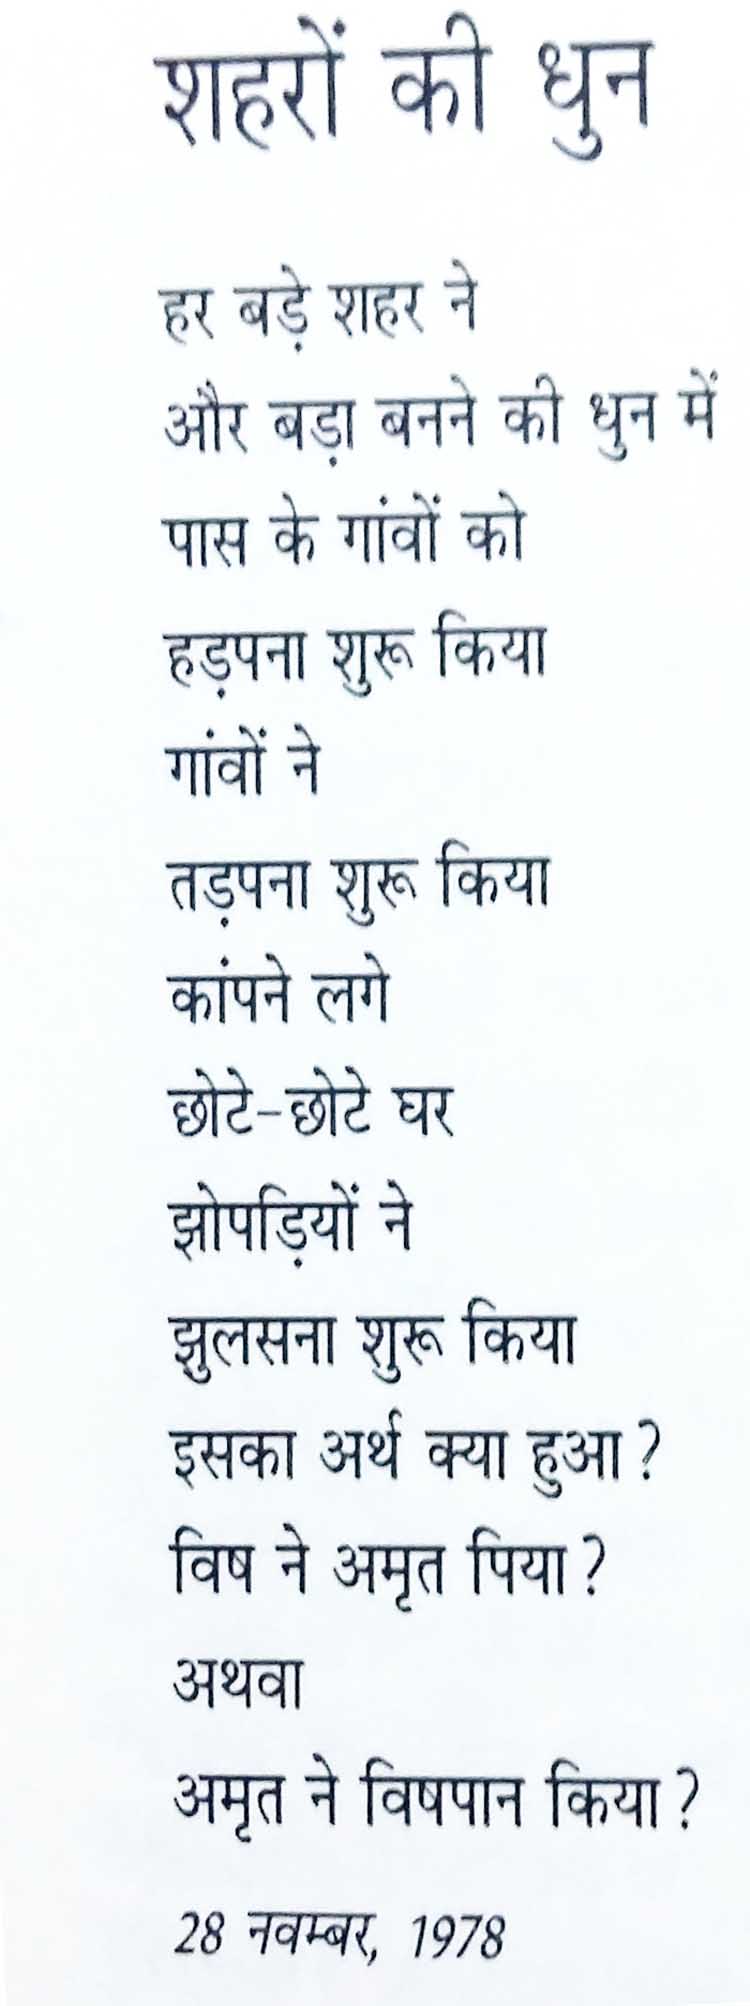 शहरों की धुन
हर बड़े शहर ने
और बड़ा बनने की धुन में
पास के गांवों को
हड़पना शुरू किया
गांवों ने
तड़पना शुरू किया
कांपने लगे
छोटे-छोटे घर
झोपड़ियों ने
झुलसना शुरू किया
इसका अर्थ क्या हुआ?
विष ने अमृत पिया?
अथवा
अमृत ने विषपान किया?
28 नवम्बर, 1978